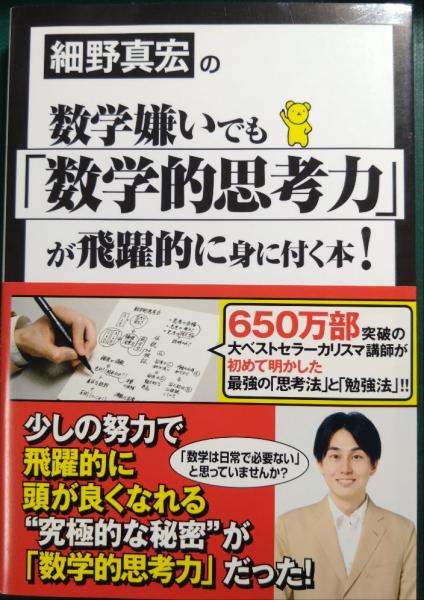 細野真宏の
数学嫌いでも
「数学的思考力」
が飛躍的に身に付く本!
650万部突破の
大ベストセラーカリスマ講師が
初めて明かした
最強の「思考法」と「勉強法」!!
少しの努力で
飛躍的に
頭が良くなれる
“究極的な秘密”が
「数学的思考力」だった!
「数学は日常で必要ない」
と思っていませんか?